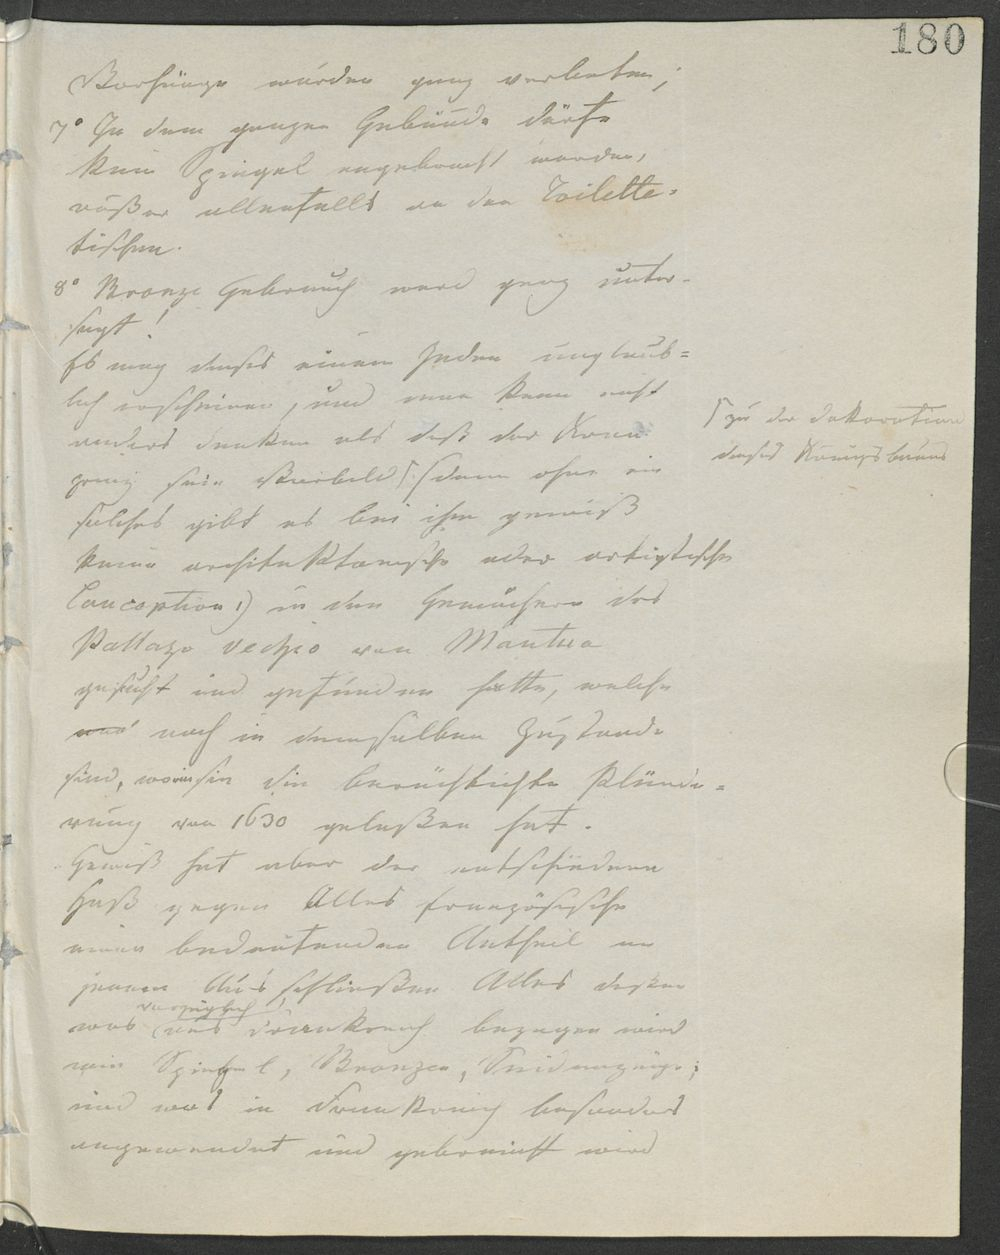 180
Vorhänge wurden ganz verboten;
7° In dem ganzen Gebäude dürfe
kein Spiegel angebracht werden,
außer allenfalls an den Toilette-
tischen.
8° Bronze Gebrauch ward ganz unter-
sagt!
Es mag dieses einem Jeden unglaub-
lich erscheinen, und man kann nicht
anders denken als daß der Kenn
ganz sein Vorbild ⌈ (denn ohne ein
⌈ zu der Dekoration
dieses Königsbaues
solches gibt es bei ihm gewiß
keine architektonische oder artistische
Conception!) in den Gemächern des
Pallazo vechio von Mantua
gesucht und gefunden hatte, welche
noch in demselben Zustande
sind, worin sie die berüchtigte Plünde-
rung von 1630 gelaßen hat.
Gewiß hat aber der entschiedene
Haß gegen Alles französische
einen bedeutenden Antheil an
jenem Ausschließen Alles dessen
was vorzüglich aus Frankreich bezogen wird
wie Spiegel, Bronzen, Seidenzeuge;
und was in Frankreich besonders
angewendet und gebraucht wird